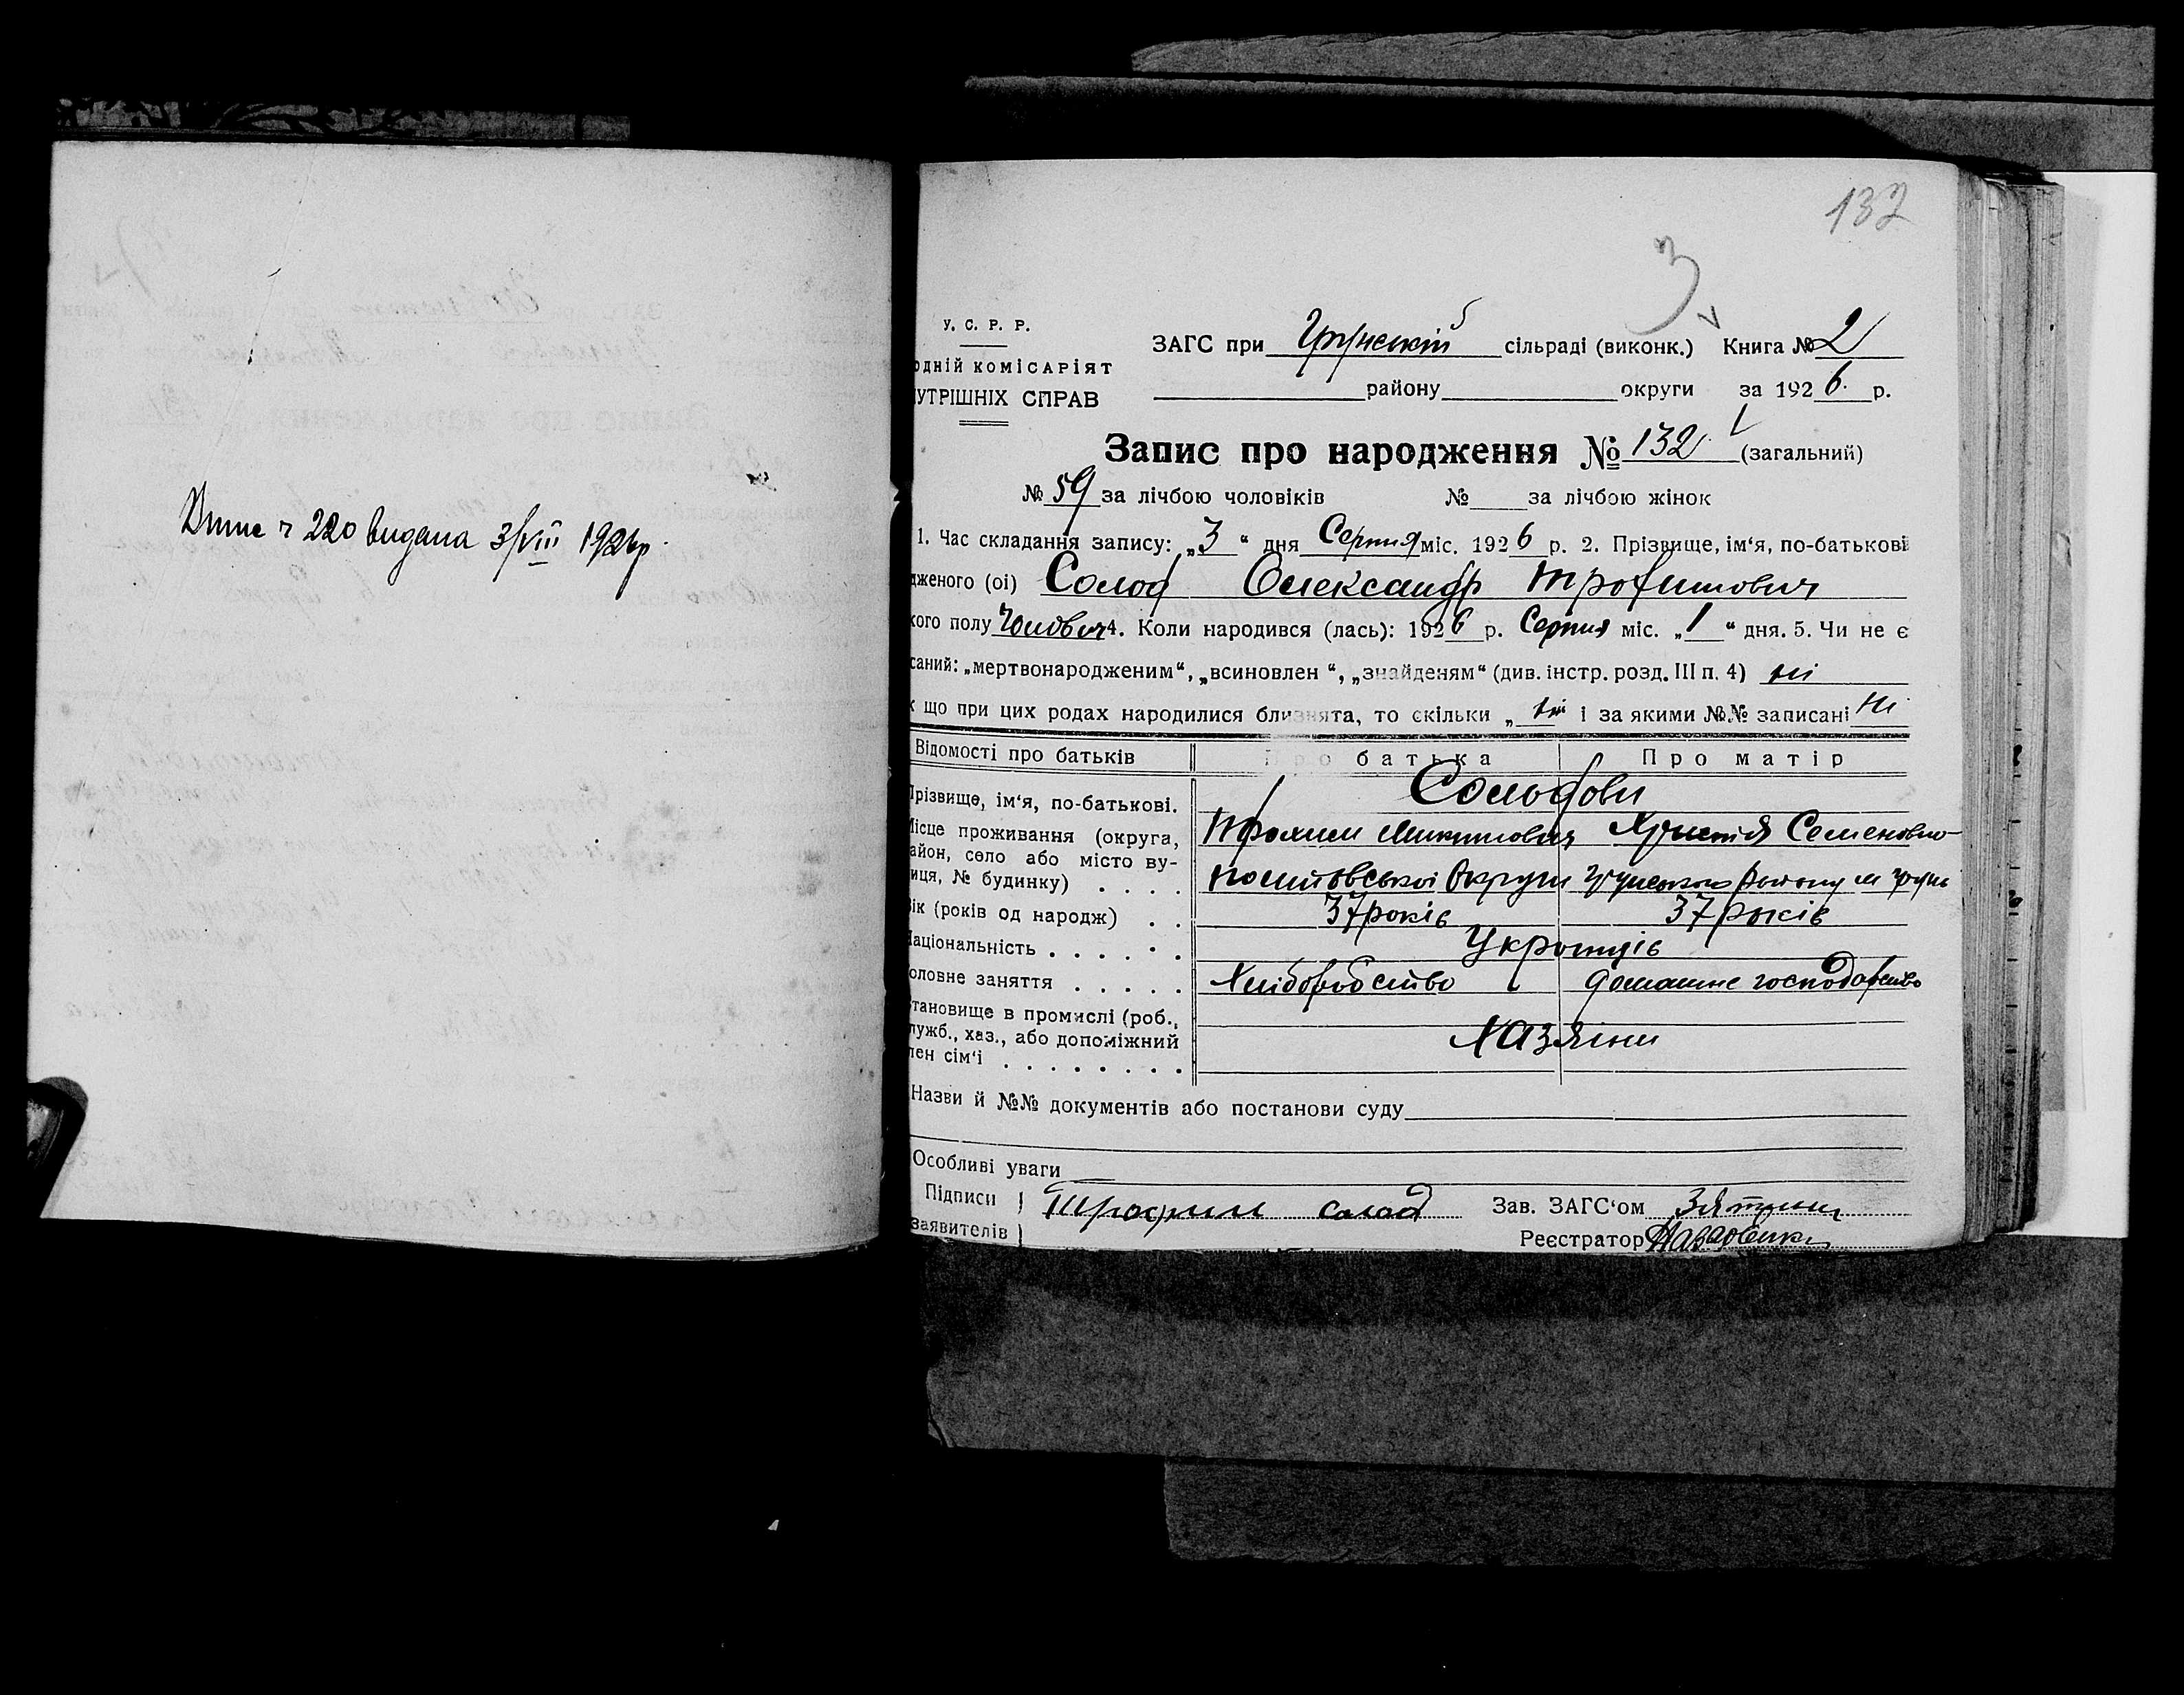 № 220 видана 3/VIII 1926 р.
132
3
У. С. Р. Р.
ЗАГС при Грунській сільраді (виконк.) Книга № 2
одній комісаріят
УТРІШНІХ СПРАВ
району округи за 1926 р.
Запис про народження № 132 (загальний)
№ 59 за лічбою чоловіків № за лічбою жінок
1. Час складання запису: „3“ дня Серпня міс. 1926 р. 2. Прізвище, ім‘я, по-батькові
дженого (ої) Солод Олександр Трофимович
кого полу Чоловіч 4. Коли народився (лась): 1926 р. Серпня міс. „1“ дня. 5. Чи не є
саний: „мертвонародженим“, „всиновлен “, „знайденям“ (див. інстр. розд. III п. 4) ні
к що при цих родах народилися близнята, то скільки „ні і за якими №№ записані Ні
Відомості про батьків Про батька Про матір
Прізвище, ім‘я, по-батькові. Солодови
Місце проживання (округа, Трохим Микитович Христія Семеновна
айон, село або місто ву-
иця, № будинку) . . . . Полтавської Округи Грунського Району м Грунь
ік (років од народж) . . 37 років 37 років
аціональність . . . . . . Українців
оловне заняття . . . . . Хліборобство домашнє господарство
тановище в промислі (роб.,
лужб., хаз., або допоміжний Хазяїни
лен сім‘ї . . . . . . . .
Назви й №№ документів або постанови суду
Особливі уваги
Підписи Трофим Солод Зав. ЗАГС‘ом
заявителів Реєстратор